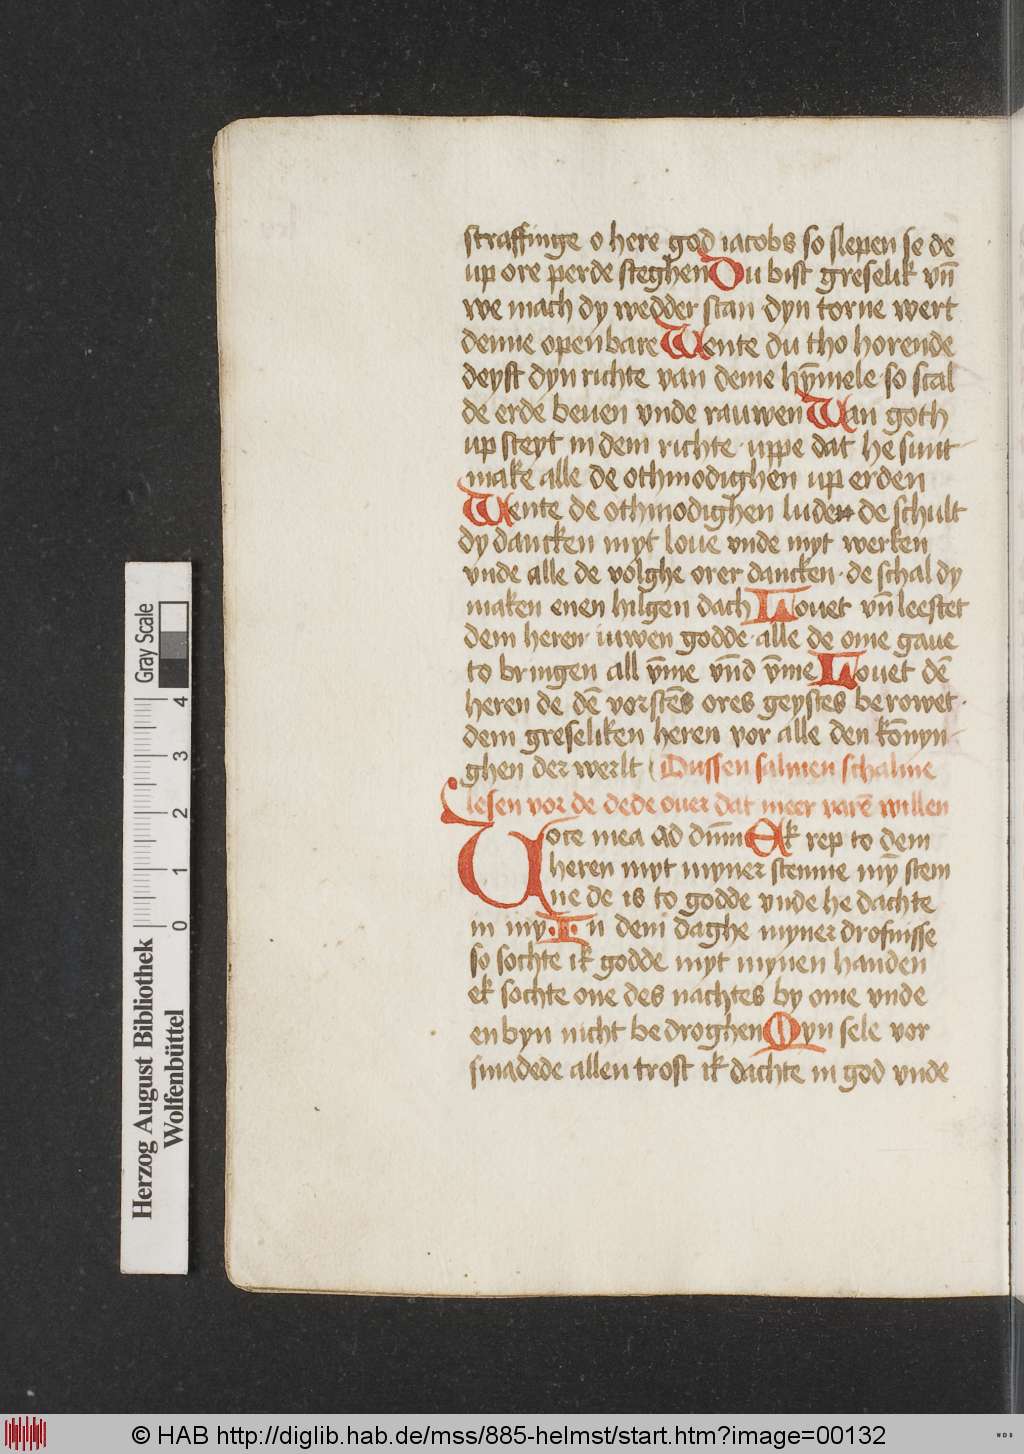 straffinge o here god iacobs so slepen se de
up ore perde steghen Du bist greselik vn̄
we mach dy wedder stan dyn torne wert
denne openbare Wente du tho horende
deyst dyn richte van deme hȳmele so scal
de erde beuen vnde rauwen Wan goth
up steyt in dem richte · uppe dat he sunt
make alle de othmodighen up erden
Wente de othmodighen luden de schult
dy dancken myt loue vnde myt werken
vnde alle de volghe orer dancken · de schal dy
maken enen hilgen dach Louet vn̄ leestet
dem heren iuwen godde · alle de ome gaue
to bringen all v̄me vn̄d v̄me Louet dē
heren de dē vorstēs ores geystes berowet ·
dem greseliken heren vor alle den kōnyn
ghen der werlt Dussen salmen schalme
lesen vor de dede ouer dat meer varē willen
Uoce mea ad dn̄m Ek rep to dem
heren myt myner stemme mȳ stem
ne de is to godde vnde he dachte
in my · In dem daghe myner drofnisse
so sochte ik godde myt mynen handen
ek sochte one des nachtes by ome vnde
en byn nicht bedroghen Myn sele vor
smadede allen trost ik dachte in god vnde
Herzog August Bibliothek
Wolfenbüttel
0 1 2 3 4
Gray Scale
© HAB http://diglib.hab.de/mss/885-helmst/start.htm?image=00132